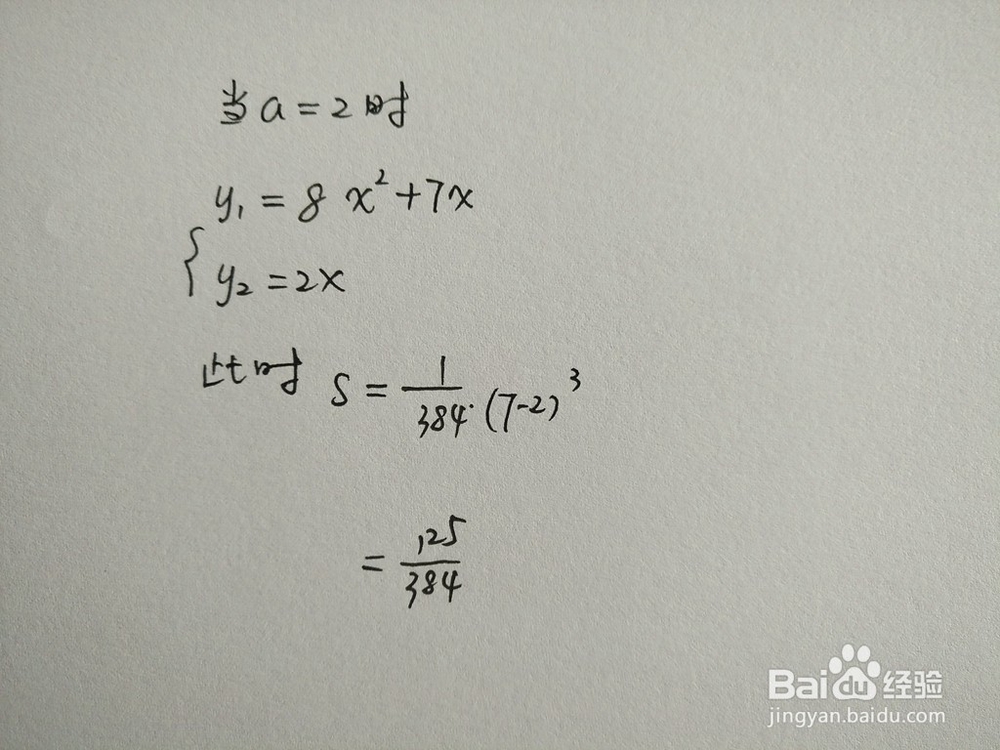 当a=2时
y₁=8x²+7x
{y₂=2x
此时 S=1/384·(7-2)³
=125/384
Baidu经验
jingyan.baidu.com